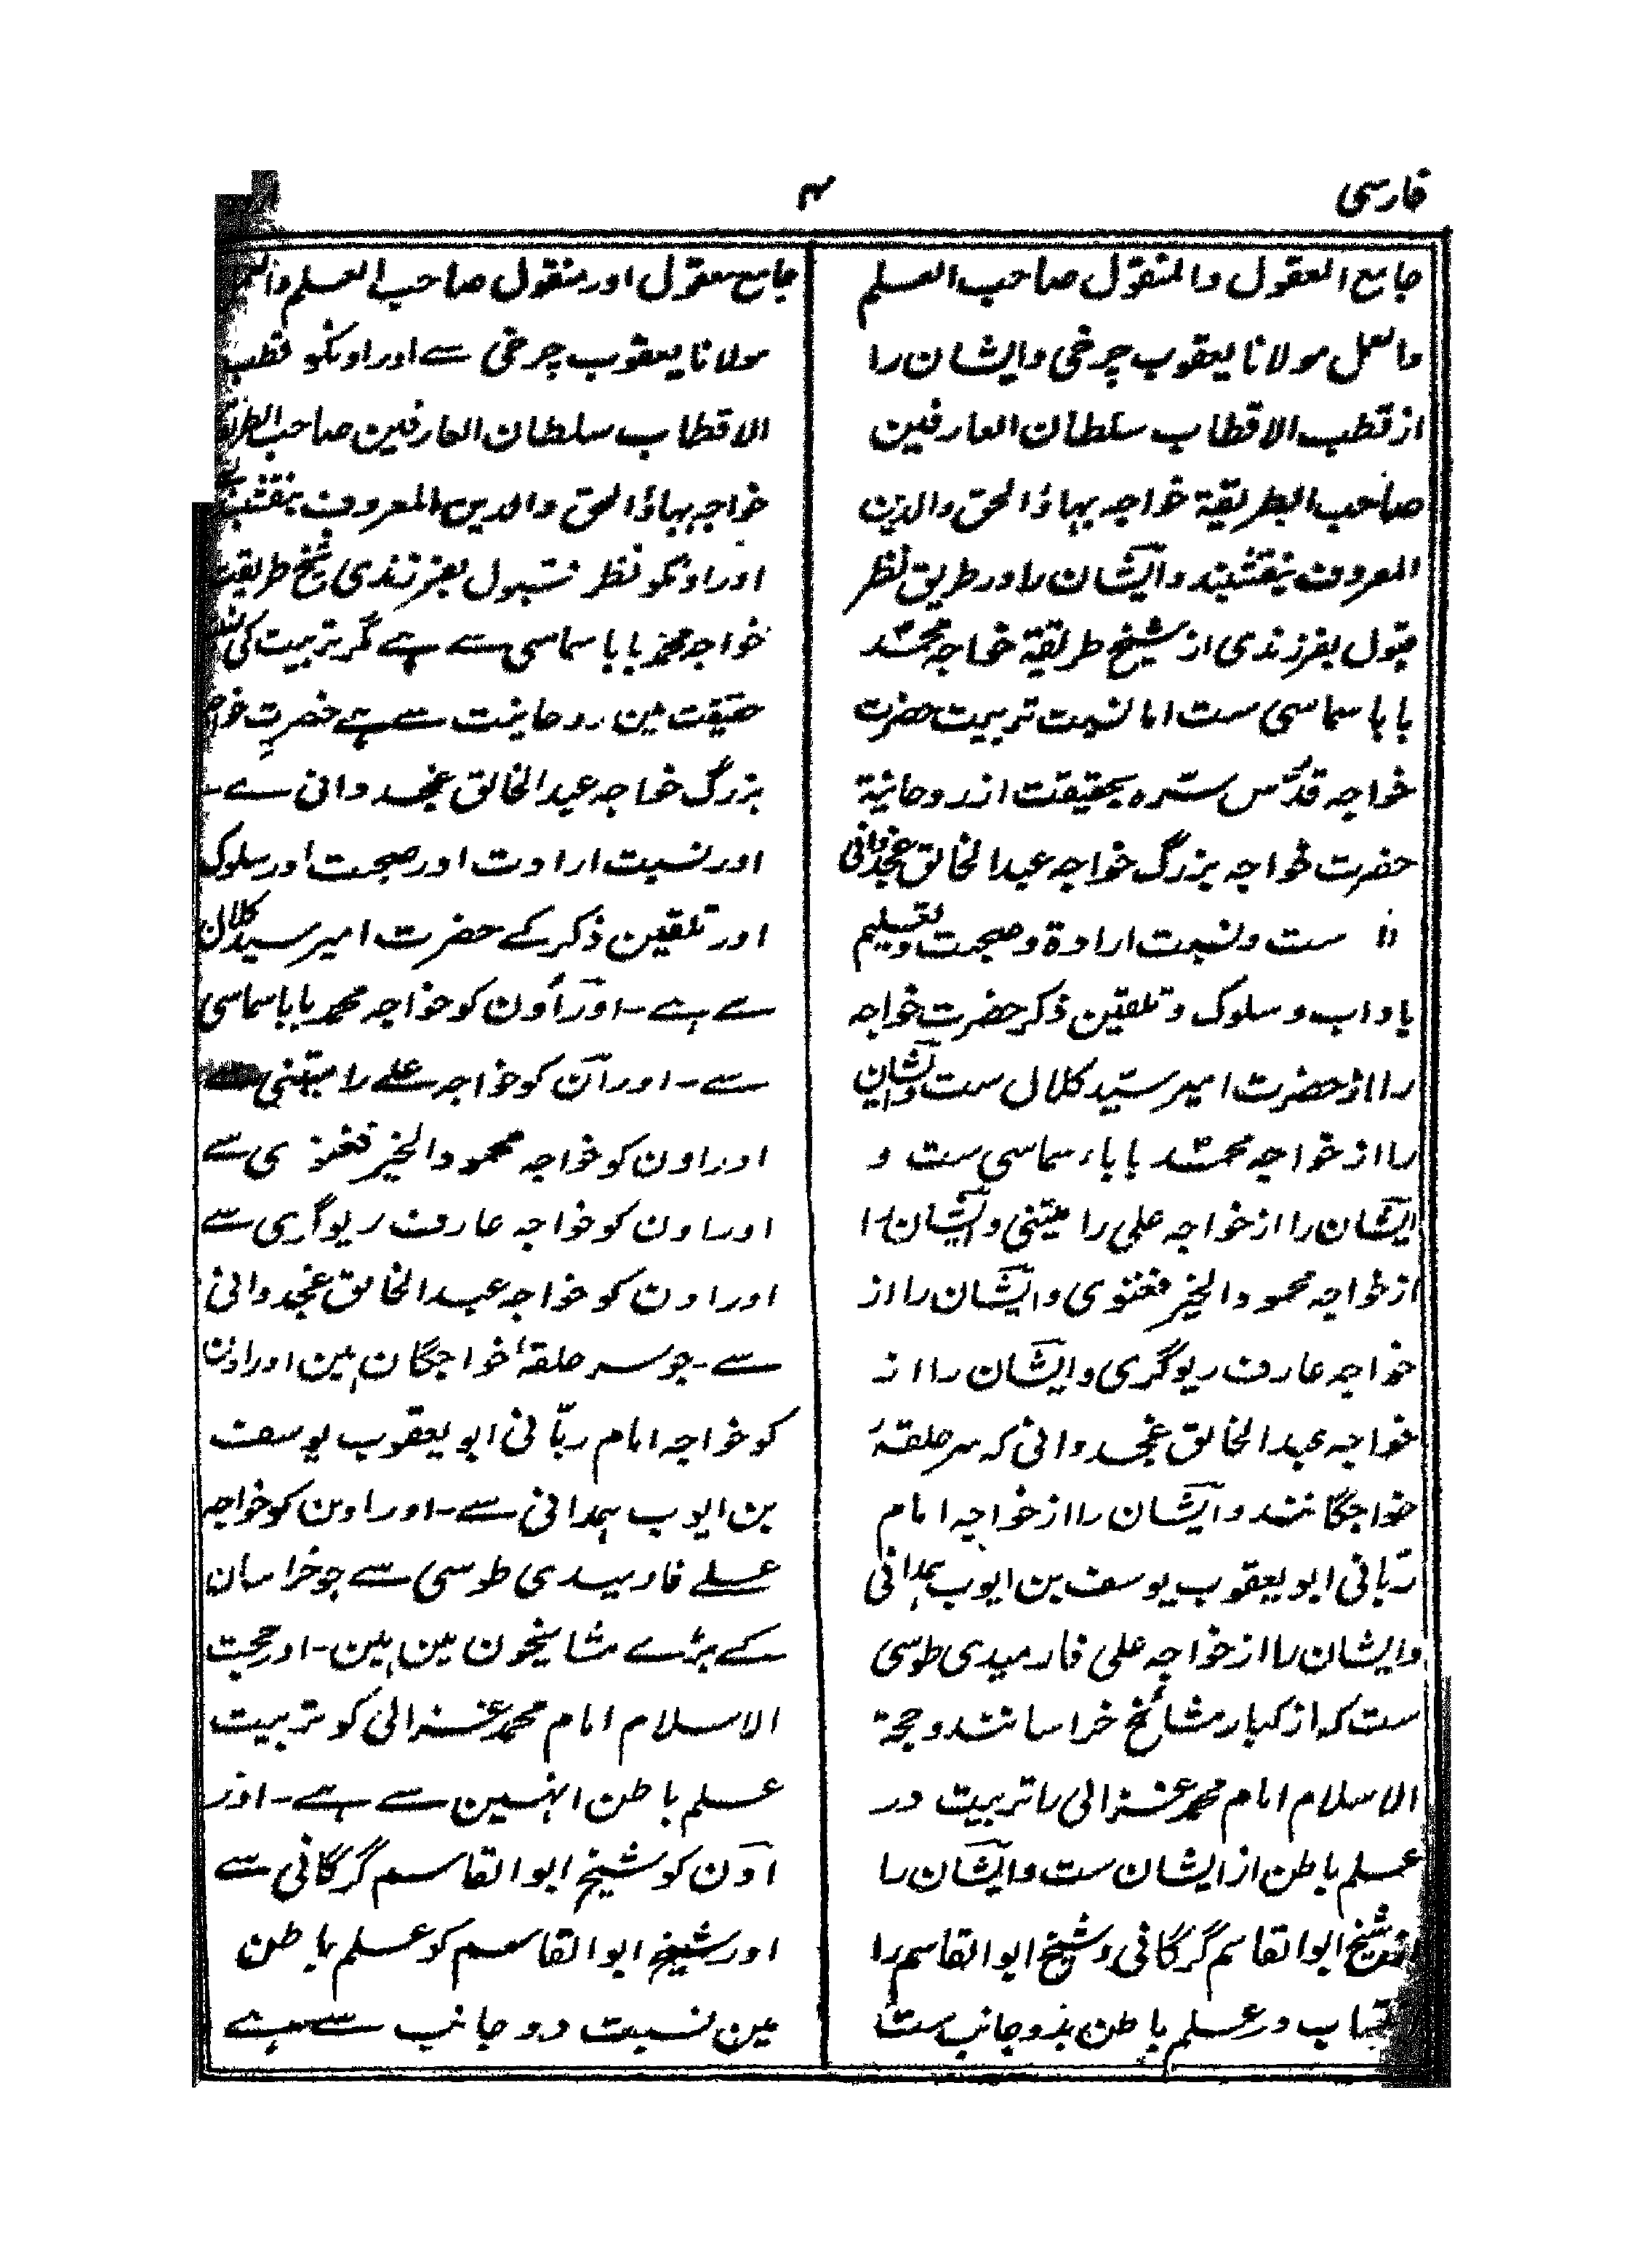 فارسی
۴
جامع المعقول والمنقول صاحب العلم
والعمل مولانا یعقوب چرخی وایشان را
از قطب الاقطاب سلطان العارفین
صاحب الطریقة خواجه بهاؤ الحق والدین
المعروف بنقشبند وایشان را در طریق نظر
قبول بفرزندی از شیخ طریقة خواجه محمّد
بابا سماسی ست اما نسبت تربیت حضرت
خواجه قدّس سّره بحقیقت از روحانیة
حضرت خواجه بزرگ خواجه عبد الخالق غجدوانی
ست ونسبت ارادة وصحبت وتعلیم
باداب وسلوک وتلقین ذکر حضرت خواجه
را از حضرت امیر سیّد کلال ست وایشان
را از خواجه محمّد باباء سماسی ست و
ایشان را از خواجه علی رامیتنی وایشان را
از خواجه محمود والخیر فغنوی وایشان را از
خواجه عارف ریوگری وایشان را از
خواجه عبد الخالق غجدوانی که سر حلقهٔ
خواجگانند وایشان را از خواجه امام
ربّانی ابو یعقوب یوسف بن ایوب همدانی
وایشان را از خواجه علی فارمیدی طوسی
ست که از کبار مشائخ خراسانند وحجة
الاسلام امام محمد غزالی را تربیت در
علم باطن از ایشان ست وایشان را
شیخ ابو القاسم گرگانی وشیخ ابو القاسم را
در علم باطن بدو جانب ست
جامع معقول اور منقول صاحب العلم
مولانا یعقوب چرخی سے اور اونکو قطب
الاقطاب سلطان العارفین صاحب الطریقة
خواجہ بہاؤ الحق والدین المعروف بنقشبند
اور اونکو نظر قبول بفرزندی شیخ طریقت
خواجہ محمد بابا سماسی سے ہے مگر تربیت کی
حقیقت مین روحانیت سے ہے حضرت خواجہ
بزرگ خواجہ عبد الخالق غجدوانی سے-
اور نسبت ارادت اور صحبت اور سلوک
اور تلقین ذکر کے حضرت امیر سید کلال
سے ہے - اور اُون کو خواجہ محمد بابا سماسی
سے - اور اُن کو خواجہ علے رامیتنی سے
اور اون کو خواجہ محمود والخیر فغنوی سے
اور اون کو خواجہ عارف ریوگری سے
اور اون کو خواجہ عبد الخالق غجدوانی
سے - جو سر حلقۂ خواجگان ہین اور اون
کو خواجہ امام ربّانی ابو یعقوب یوسف
بن ایوب ہمدانی سے - اور اون کو خواجہ
علے فارمیدی طوسی سے جو خراسان
کے بڑے مشایخون مین ہین - اور حجت
الاسلام امام محمد غزالی کو تربیت
علم باطن انہین سے ہے - اور
اون کو شیخ ابو القاسم گرگانی سے
اور شیخ ابو القاسم کو علم باطن
مین نسبت دو جانب سے ہے